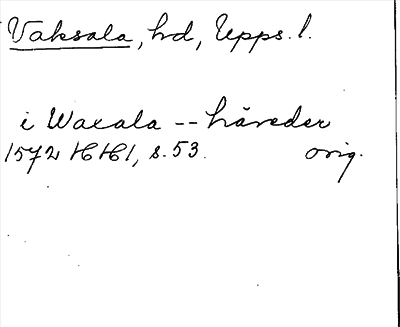 Vaksala, hd, Upps. l.
i Waxala -- häreder
1572 HH1, s. 53. orig.